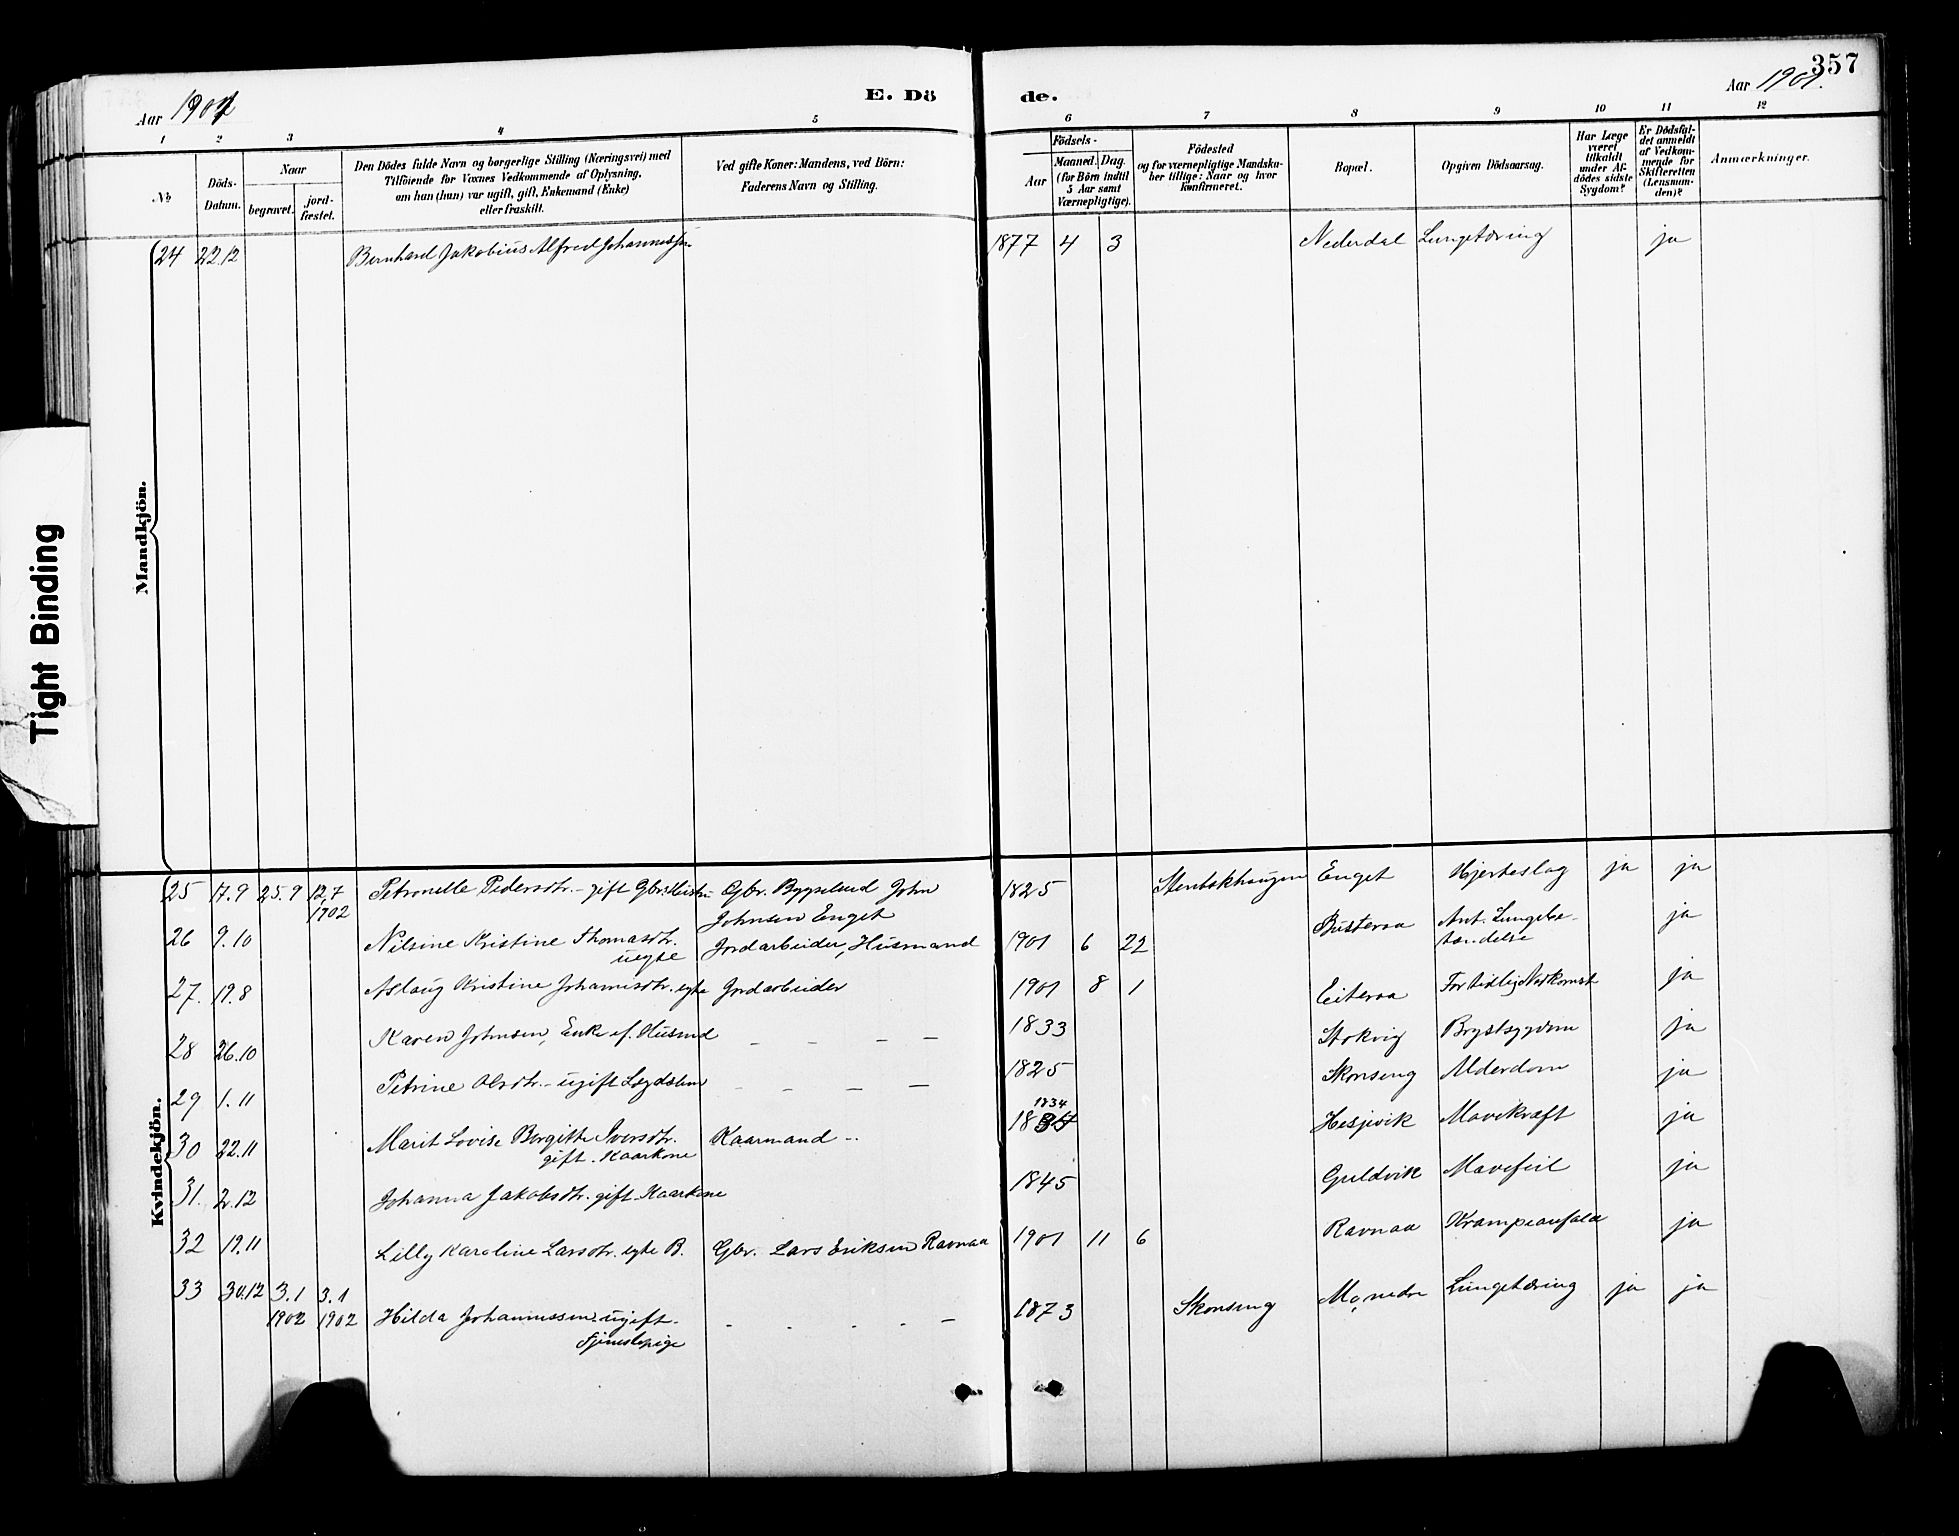 357
Aar 1901
E. Dö
de.
Aar 1901.
1 2 3 4 5 6 7 8 9 10 11 12
No
Döds-
Datum.
Naar
begravet.
jord-
fæstet.
Den Dödes fulde Navn og borgerlige Stilling (Næringsvei) med
Tilföiende for Voxnes Vedkommende af Oplysning,
om han (hun) var ugift, gift, Enkemand (Enke)
eller fraskilt.
Ved gifte Koner: Mandens, ved Börn:
Faderens Navn og Stilling.
Födsels-
Aar
Maaned. Dag.
(for Börn indtil
5 Aar samt
Værnepligtige).
Födested
og for værnepligtige Mandskaber tillige: Naar og hvor
konfirmeret.
Bopæl.
Opgiven Dödsaarsag.
Har Læge
været
tilkaldt
under Afdödes sidste
Sygdom?
Er Dödsfaldet anmeldt
af Vedkommende for
Skifteretten
(Lensmanden)?
Anmærkninger.
Mandkjön.
24 22.12 Bernhard Jakobius Alfred Johannessen 1877 4 3 Nederdal Lungetæring ja
Tight Binding
Kvindekjön.
25 17.9 25.9 12.7 Petronelle Pedersdtr. - gift Gbr. Gbr. Bygselmd John 1825 Stenbakhaugen Enget Hjerteslag ja ja
1902 Johnsen Enget
26 9.10 Nilsine Kristine Thomasdtr. Jordarbeider, Husmand 1901 6 22 Busteraa Ant. Lungebe-
uegte tændelse ja
27. 19.8 Aslaug Kristine Johannisdtr. egte Jordarbeider 1901 8 1 Eiteraa For tidlig Nedkomst ja
28 26.10 Karen Johnsen, Enke ef. Husmd - - - - 1833 Stokvig Brystsygdom ja
29 1.11 Petrine Olsdtr. - ugift Lægdslem - - - - 1825 Skonseng Alderdom ja
1834
30 22.11 Marit Lovise Borgitte Iversdtr. Kaarmand - 1834 Hesjevik Mavekræft ja
gift. Kaarkone
31. 2.12 Johanna Jakobsdtr. gift Kaarkone 1845 Guldvik Mavefeil ja
32 19.11 Lilly Karoline Larsdtr. egte B. Gbr. Lars Eriksen Ravnaa 1901 11 6 Ravnaa Krampeanfald ja
33 30.12 3.1 3.1 Hilda Johannessen. ugift. - - - - - 1873 Skonseng Lungetæring ja ja
1902 1902
Tjenestepige